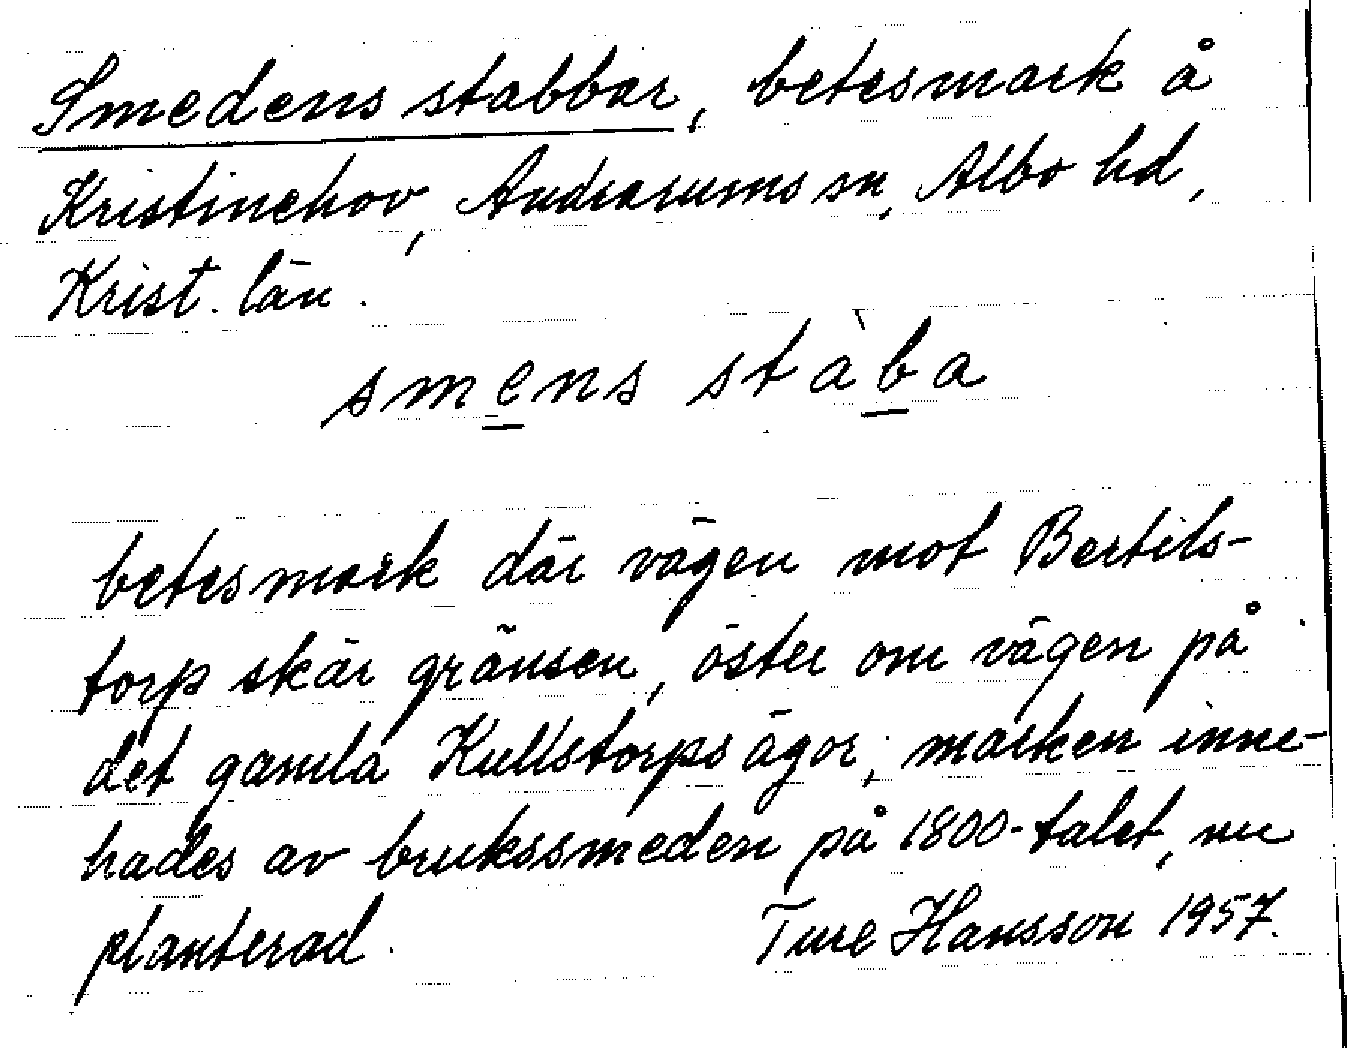 Smedens stabbar, betesmark å
Kristinehov, Andrarums sn, Albo hd,
Krist. län.
smens stàba
betesmark där vägen mot Bertils-
torp skär gränsen, öster om vägen på
det gamla Kullstorps ägor; marken inne-
hades av brukssmeden på 1800-talet, nu
planterad. Ture Hansson 1957.